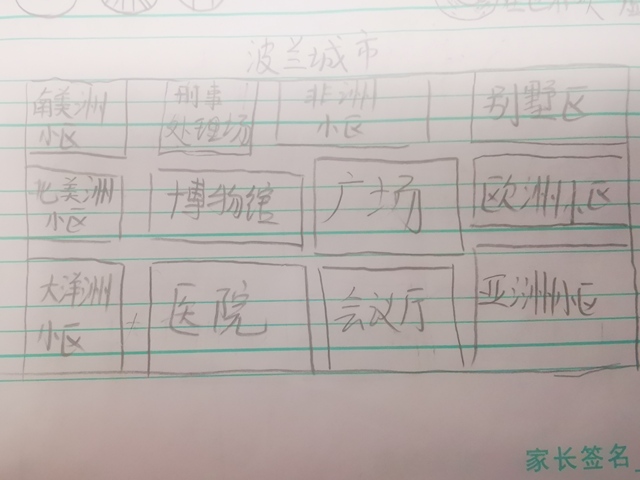 波兰城市
南美洲
小区
刑事
处理场
非洲
小区
别墅区
北美洲
小区
博物馆
广场
欧洲小区
大洋洲
小区
医院
会议厅
亚洲小区
家长签名